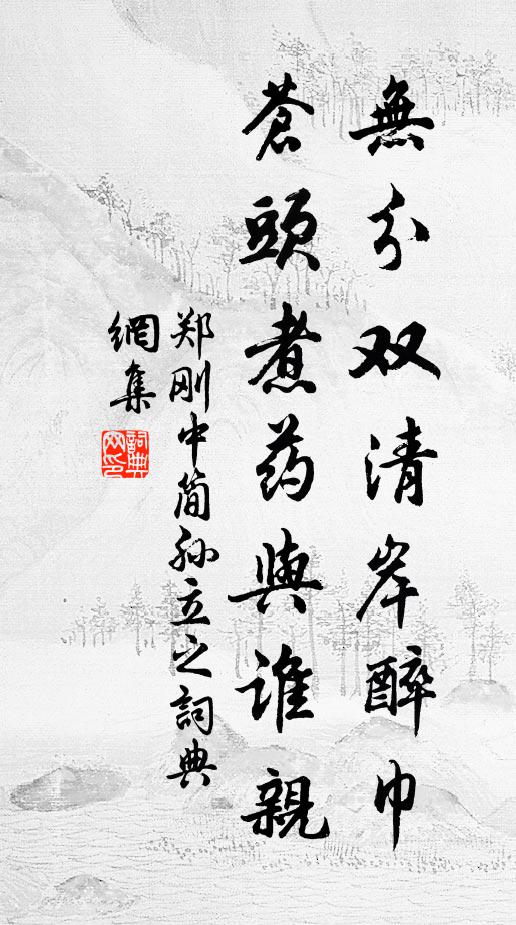 無分双清岸醉巾
蒼頭煮药與谁親
郑刚中简孙立之詞典
網集
詞典網印